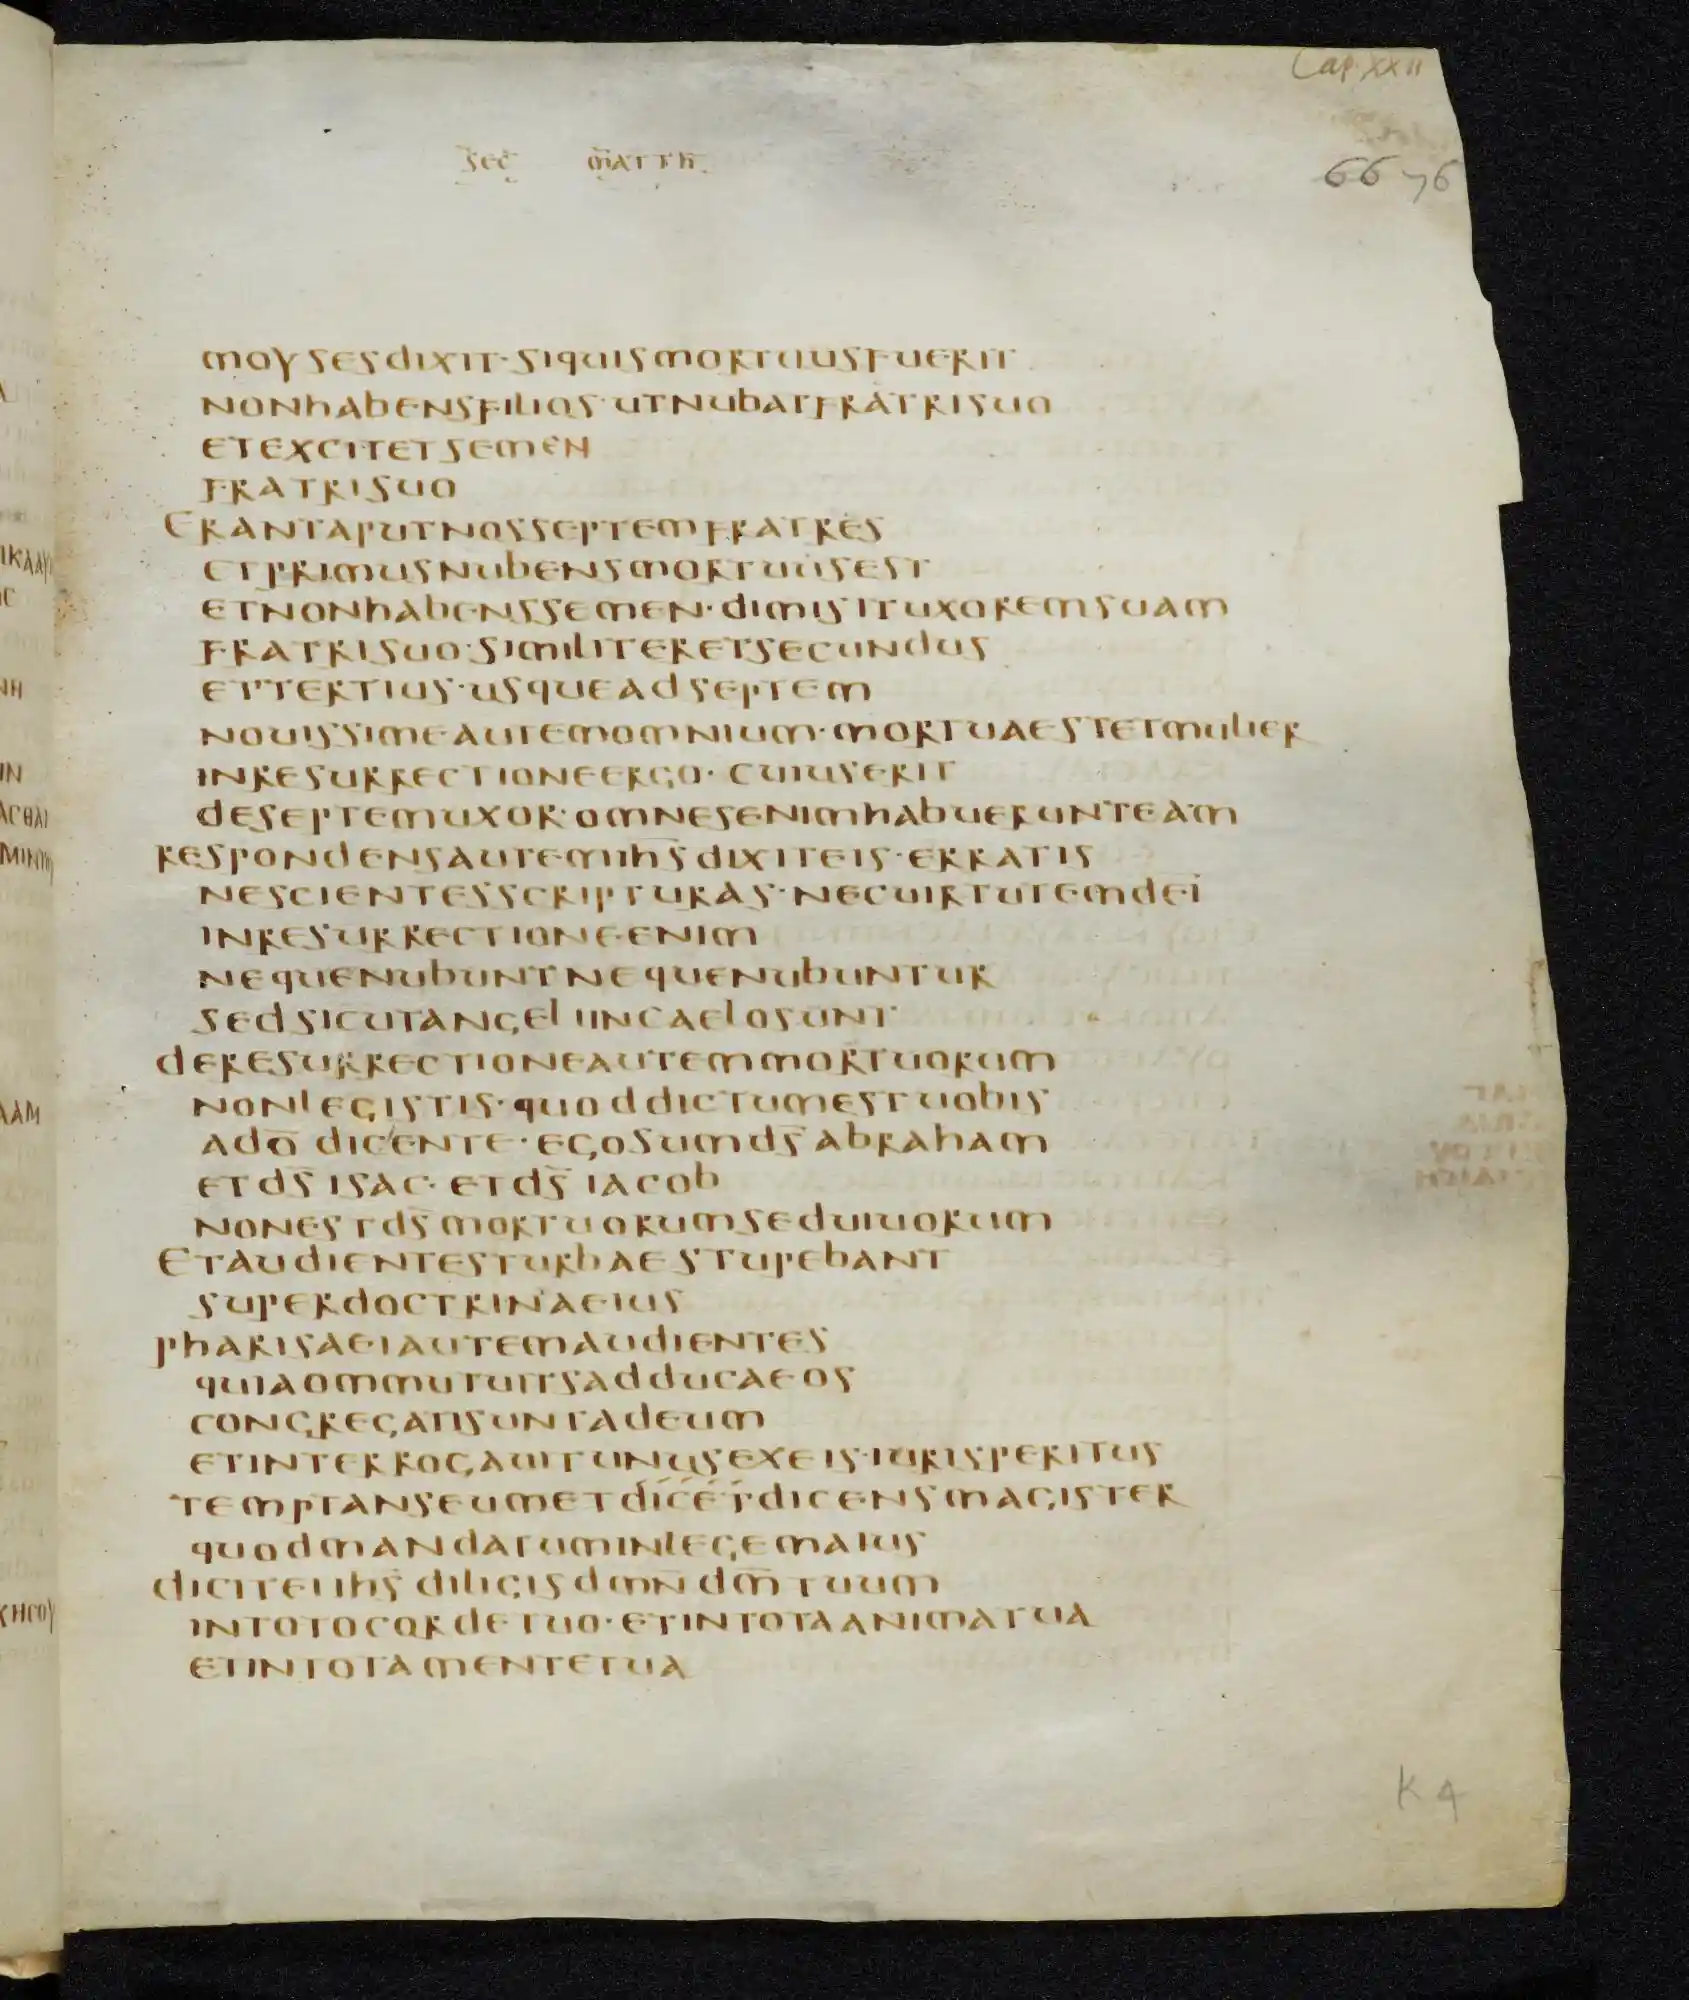 Cap. XXII
sec matth
66 76
moysesdixit· siquismortuusfuerit
nonhabensfilios· utnubatfratrisuo
etexcitetsemen
fratrisuo
Erantaputnosseptemfratres
etprimusnubensmortuusest
etnonhabenssemen· dimisituxoremsuam
fratrisuo· similiteretsecundus
ettertius· usqueadseptem
nouissimeautemomnium· mortuaestetmulier
inresurrectioneergo· cuiuserit
deseptemuxor· omnesenimhabuerunteam
respondensautemihs̄dixiteis· erratis
nescientesscripturas· necuirtutemdei
inresurrectioneenim
nequenubuntnequenubuntur
sedsicutangeliincaelosunt
deresurrectioneautemmortuorum
nonlegistis· quoddictumestuobis
adō dicente· egosumds̄abraham
etds̄ isac· etds̄ iacob
nonestds̄mortuorumseduiuorum
Etaudientesturbaestupebant
superdoctrinaeius
pharisaeiautemaudientes
quiaommutuitsadducaeos
congregatisuntadeum
etinterrogauitunusexeis· iurisperitus
temptanseumetdicetdicensmagister
quodmandatuminlegemaius
diciteiihs̄ diligisdmn̄dm̄tuum
intotocordetuo· etintotaanimatua
etintotamentetua
K 4